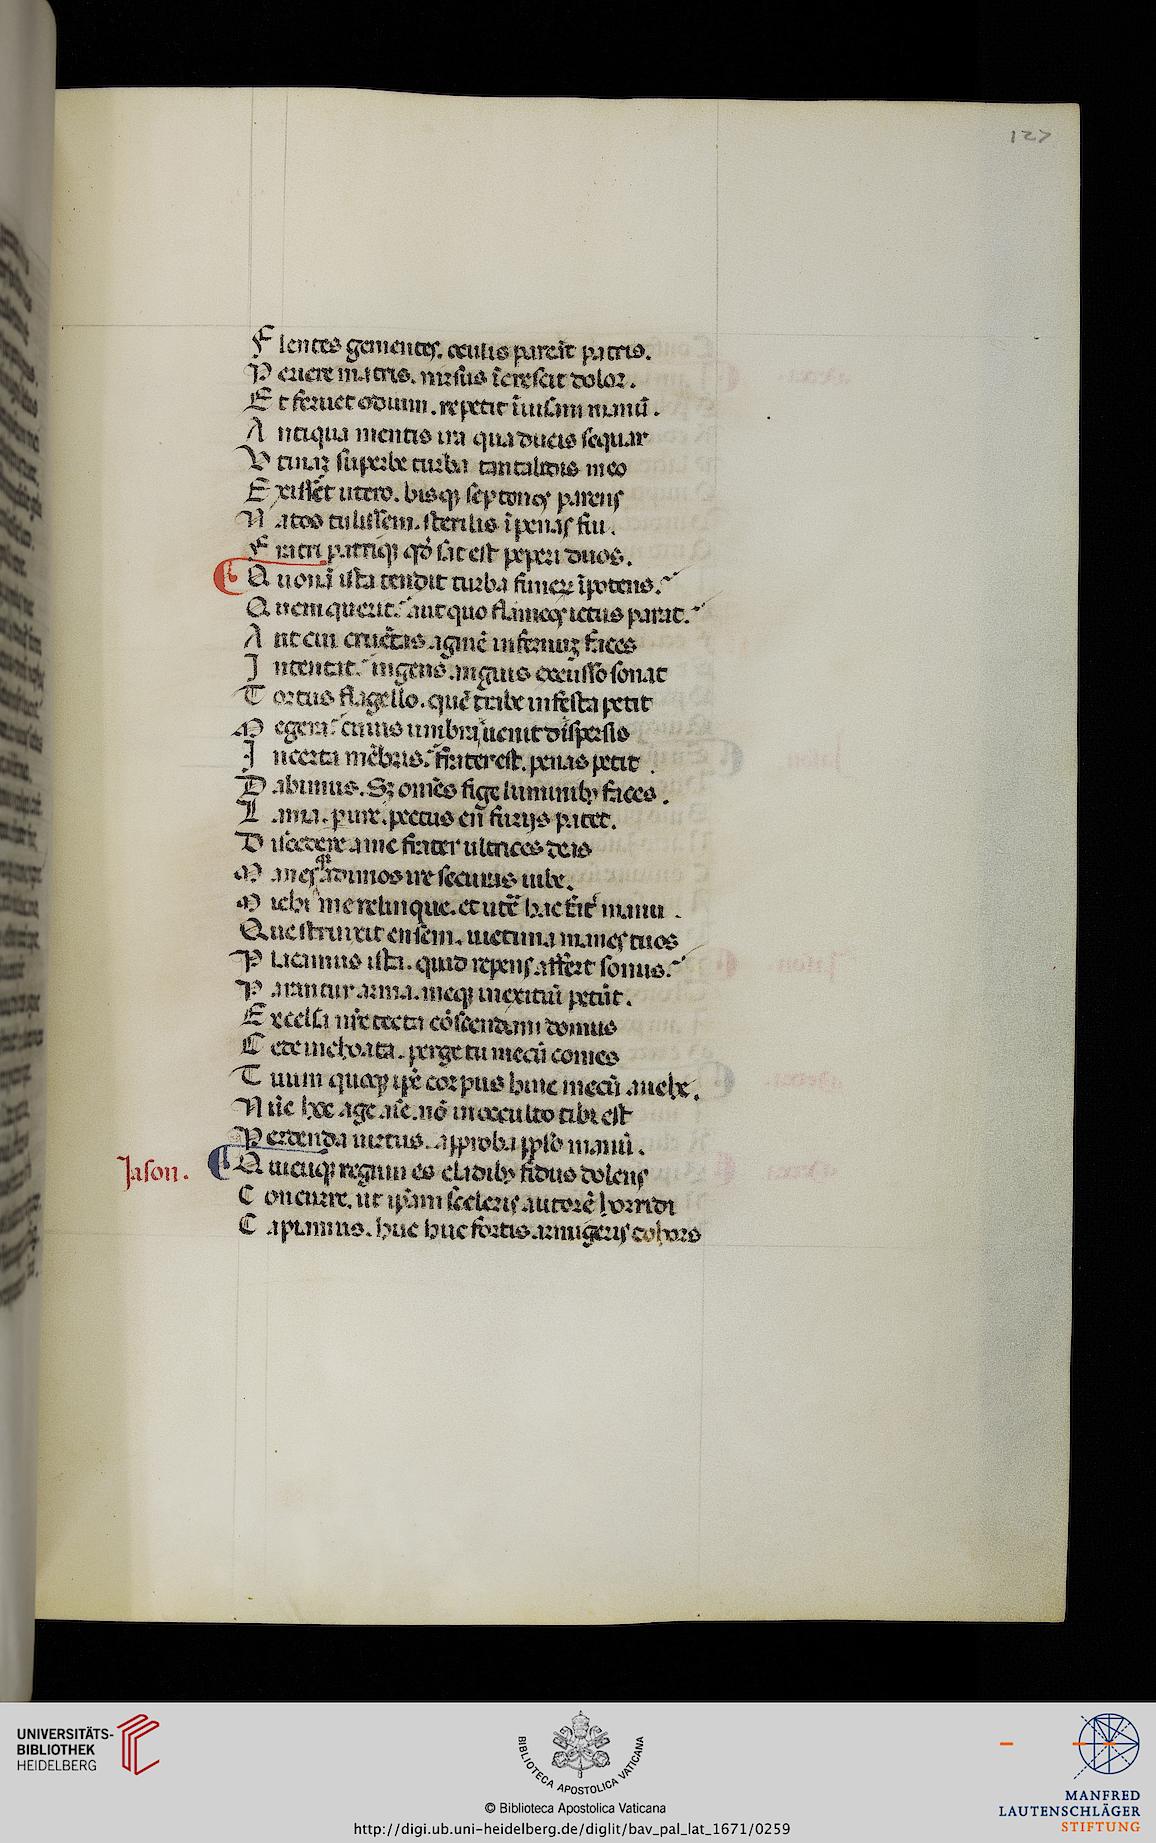 127
Flentes gementes. oculis pareāt patris.
Periere matris. rursus īcrescit dolor.
Et feruet odium. repetit īuisam manū.
Antiqua mentis ira qua ducis sequar
Utinaꝫ superbe turba tantalidis meo
Exissēt utero. bisqꝫ septenos parens
Natos tulissem. sterilis ī penas fui.
Fratri patriqꝫ qđ sat est peperi duos.
Quonā ista tendit turba funeꝝ īpotens.
Quem querit. aut quo flameos ictus parat.
Aut cui cruētas agmē infernuꝫ faces
Intentat. ingens anguis excusso sonat
Tortus flagello. quē trabe infesta petit
Megera. cuius umbra uenit dispersis
Incerta mēbris. frater est. penas petit.
Dabimus. Sꝫ omēs fige luminibꝫ faces.
Lania. pure. pectus en̄ furijs patet.
Discedere a me frater ultrices deas
Manesqꝫ ad imos ire securas iube.
Michi me relinque. et utē hac frat̄ manu.
Que strinxit ensem. uictima manes tuos
Placamus ista. quid repens affert sonus.
Parantur arma. meqꝫ in exitiū petūt.
Excelsa nr̄e tecta cōscendam domus
Cede inchoata. perge tu mecū comes
Tuum quoqꝫ ip̄e corpus hinc mecū aueha.
Nūc hoc age aīe. nō in occulto tibi est
Perdenda uirtus. approba pplo manū.
Jason.
Quicūqꝫ regum es cladibꝫ fidus dolens
Concurre. ut ip̄am sceleris autorē horridi
Capiamus. huc huc fortis armigeris cohors
UNIVERSITÄTS-
BIBLIOTHEK
HEIDELBERG
BIBLIOTECA APOSTOLICA VATICANA
© Biblioteca Apostolica Vaticana
http://digi.ub.uni-heidelberg.de/diglit/bav_pal_lat_1671/0259
MANFRED
LAUTENSCHLÄGER
STIFTUNG